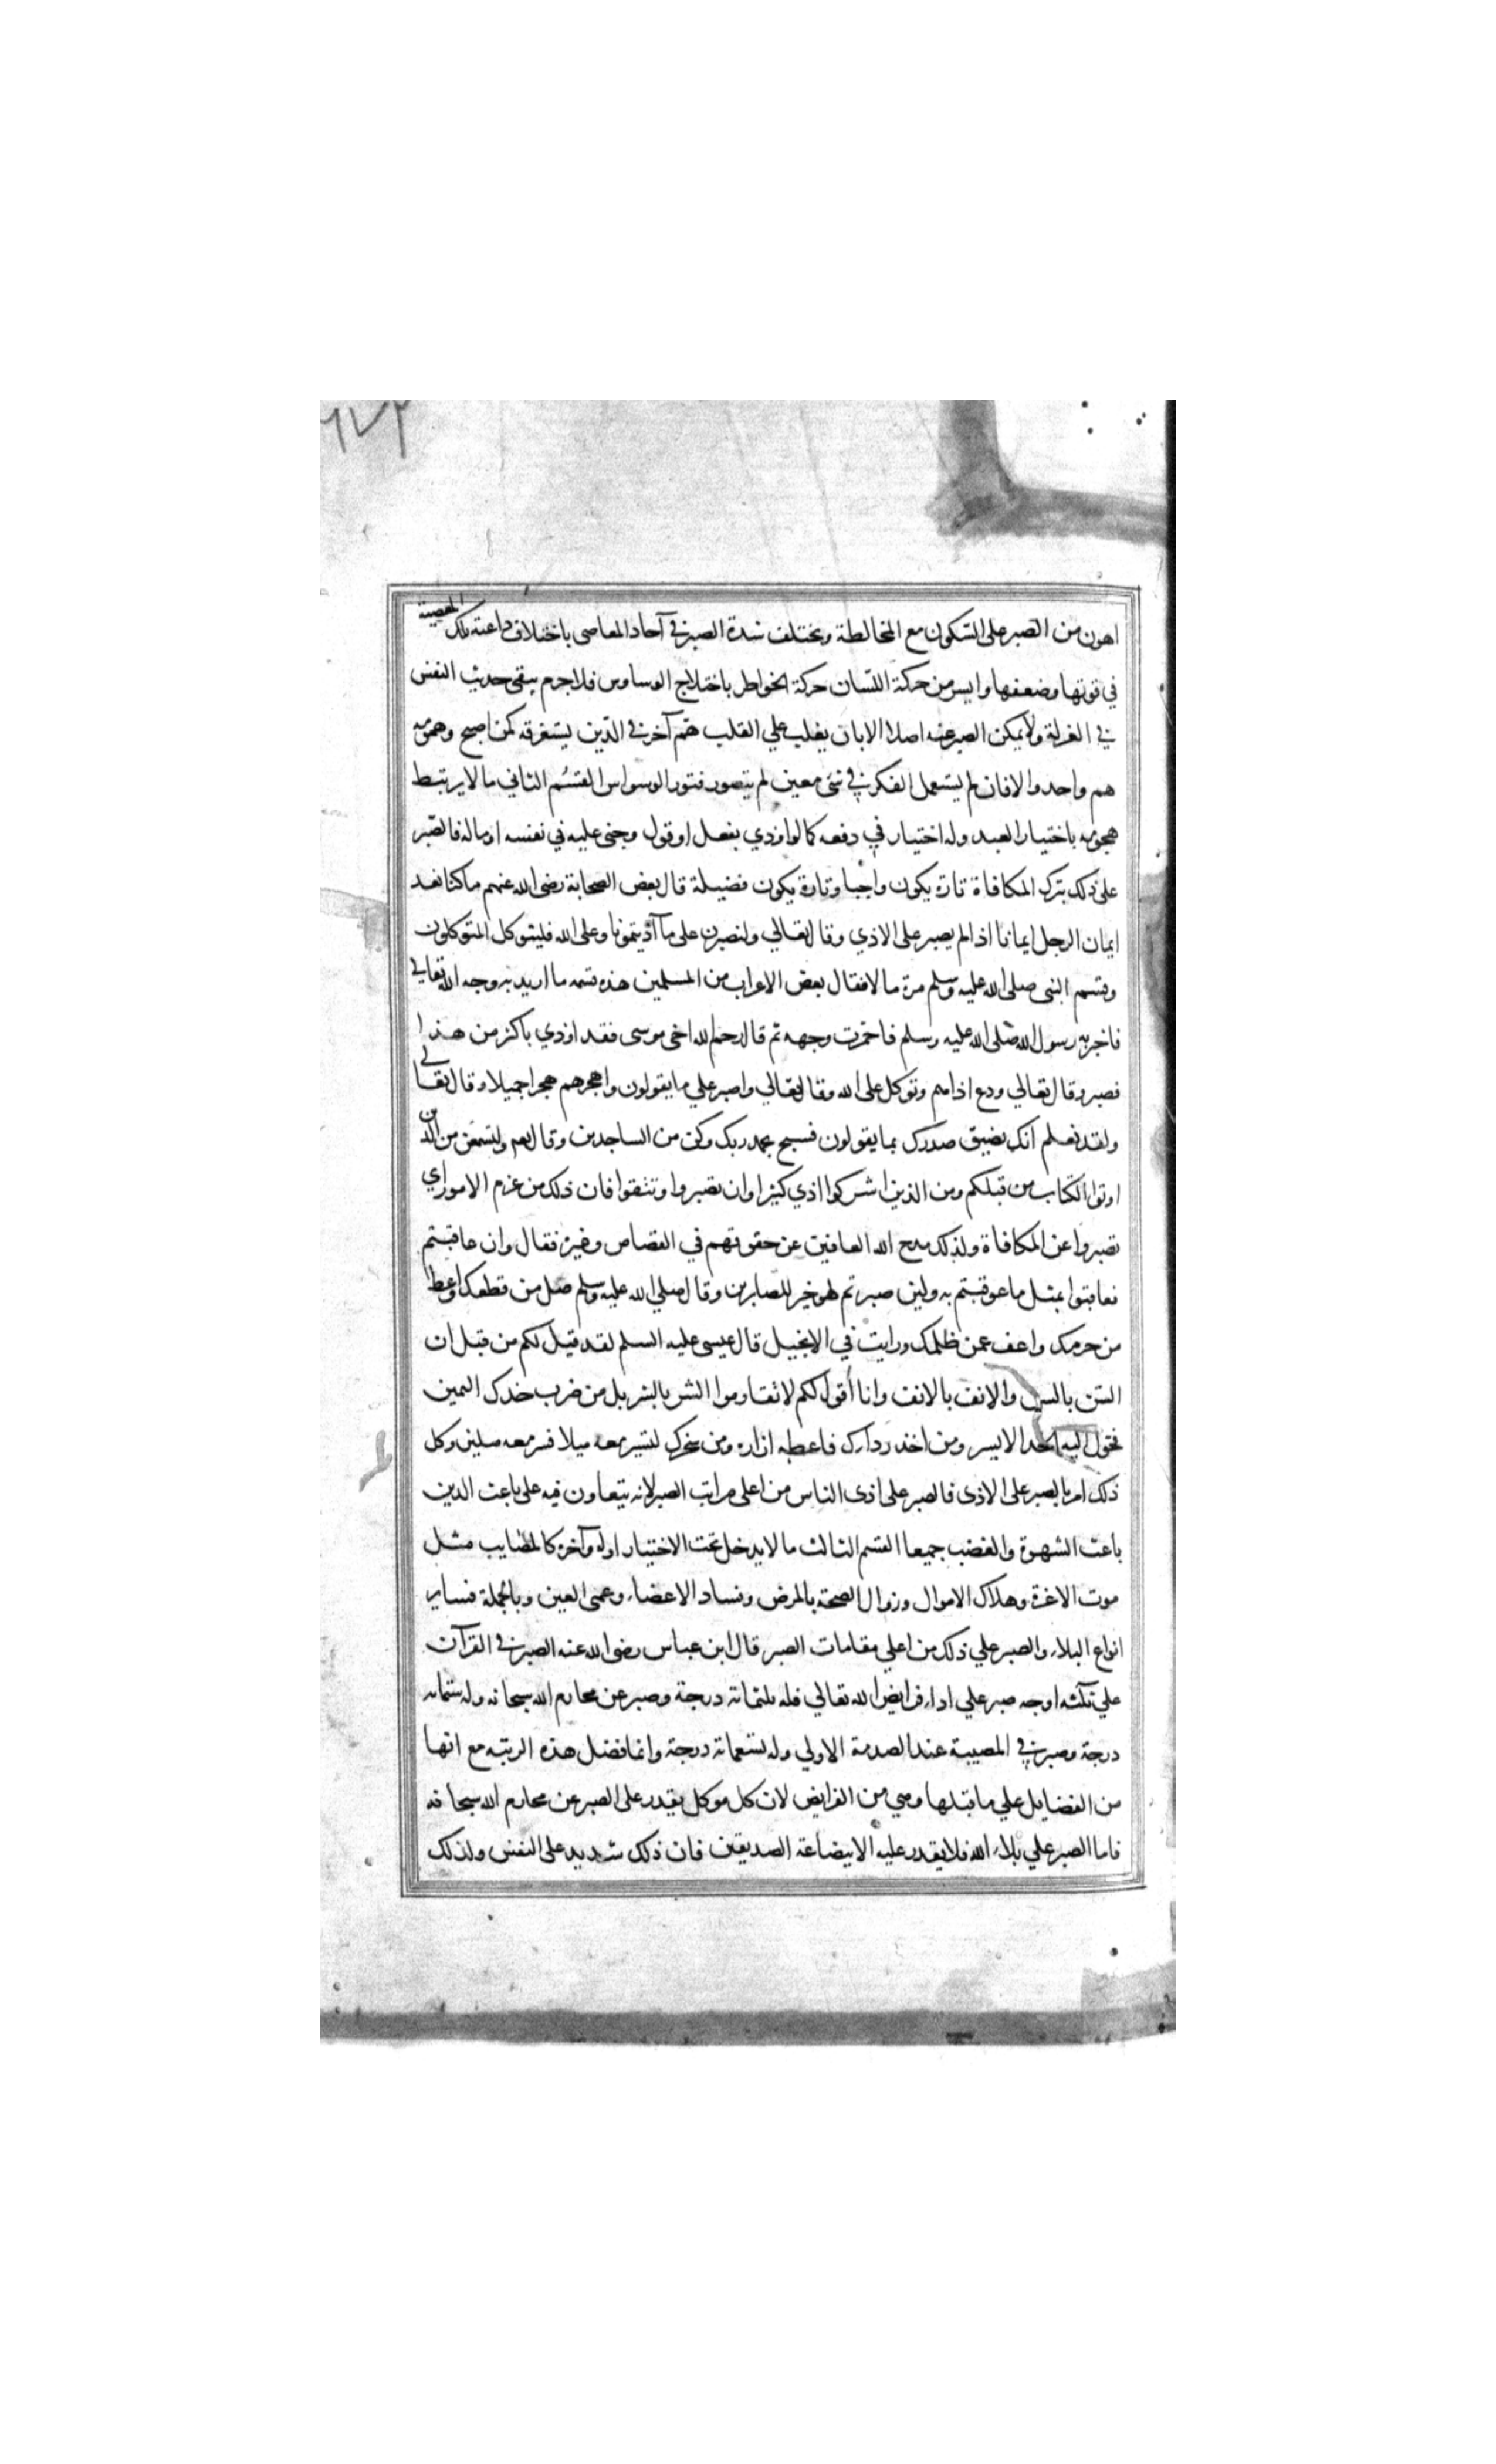 ٦٧٣
اهون من الصبر على السكون مع المخالطة ويختلف شدة الصبر في آحاد المعاصى باختلاف داعته تلك المعصية
في قوتها وضعفها وايسر من حركة اللسان حركة الخواطر باختلاج الوساوس فلا جرم يبقى حديث النفس
في العزلة ولا يمكن الصبر عنه اصلا الا بان يغلب علي القلب هم آخر في الدين يستغرقه كمن اصبح وهمومه
هم واحد والا فان لم يستعمل الفكر في شئ معين لم يتصور فتور الوسواس القسم الثاني ما لا يرتبط
هجومه باختيار العبد وله اختيار في دفعه كما لو اوذي بفعل او قول وجنى عليه في نفسه او ماله فالصبر
على ذلك بترك المكافاة تارة يكون واجبا وتارة يكون فضيلة قال بعض الصحابة رضى الله عنهم ما كنا نعد
ايمان الرجل ايمانا اذا لم يصبر على الاذي وقال تعالي ولنصبرن على ما آذيتمونا وعلى الله فليتوكل المتوكلون
وقسم النبى صلى الله عليه وسلم مرة مالا فقال بعض الاعراب من المسلمين هذه قسمه ما اريد به وجه الله تعالي
فاخبر به رسول الله صلى الله عليه وسلم فاحمرت وجهه ثم قال رحم الله اخى موسى فقد اوذي باكثر من هذا
فصبر وقال تعالي ودع اذاهم وتوكل على الله وقال تعالي واصبر علي ما يقولون واهجرهم هجرا جميلا وقال تعالي
ولقد نعلم انك يضيق صدرك بما يقولون فسبح بحمد ربك وكن من الساجدين وقال تعم ولتسمعن من الذين
اوتوا الكتاب من قبلكم ومن الذين اشركوا اذي كثيرا وان تصبروا وتتقوا فان ذلك من عزم الامور اي
تصبروا عن المكافاة ولذلك مدح الله العافين عن حقوقهم في القصاص وغيره فقال وان عاقبتم
فعاقبوا بمثل ما عوقبتم به ولين صبرتم لهو خير للصابرين وقال صلي الله عليه وسلم صل من قطعك واعط
من حرمك واعف عمن ظلمك ورايت في الانجيل قال عيسى عليه السلم لقد قيل لكم من قبل ان
السن بالسن والانف بالانف وانا أقول لكم لا تقاوموا الشر بالشر بل من ضرب خدك اليمين
فحول اليه الخد الايسر ومن اخذ رداك فاعطه ازاره ومن سخرك لتسير معه ميلا فسر معه ميلين وكل
ذلك امر بالصبر على الاذى فالصبر على اذى الناس من اعلى مراتب الصبر لانه يتعاون فيه على باعث الدين
باعث الشهوة والغضب جميعا القسم الثالث ما لا يدخل تحت الاختيار اوله وآخره كالمصايب مثل
موت الاعزة وهلاك الاموال وزوال الصحة بالمرض وفساد الاعضاء وعمى العين وبالجملة فساير
انواع البلاء والصبر علي ذلك من اعلي مقامات الصبر قال ابن عباس رضى الله عنه الصبر في القرآن
علي ثلثه اوجه صبر علي اداء فرايض الله تعالي فله ثلثماتة درجة وصبر عن محارم الله سبحانه وله ستمايه
درجة وصبر في المصيبة عند الصدمة الاولي وله تسعماتة درجة وانما فضل هذه الرتبه مع انها
من الفضايل علي ما قبلها وهي من الفرايض لان كل موكل يقدر على الصبر عن محارم الله سبحانه
فاما الصبر علي بلاء الله فلا يقدر عليه الا ببضاعة الصديقين فان ذلك شديد على النفس ولذلك